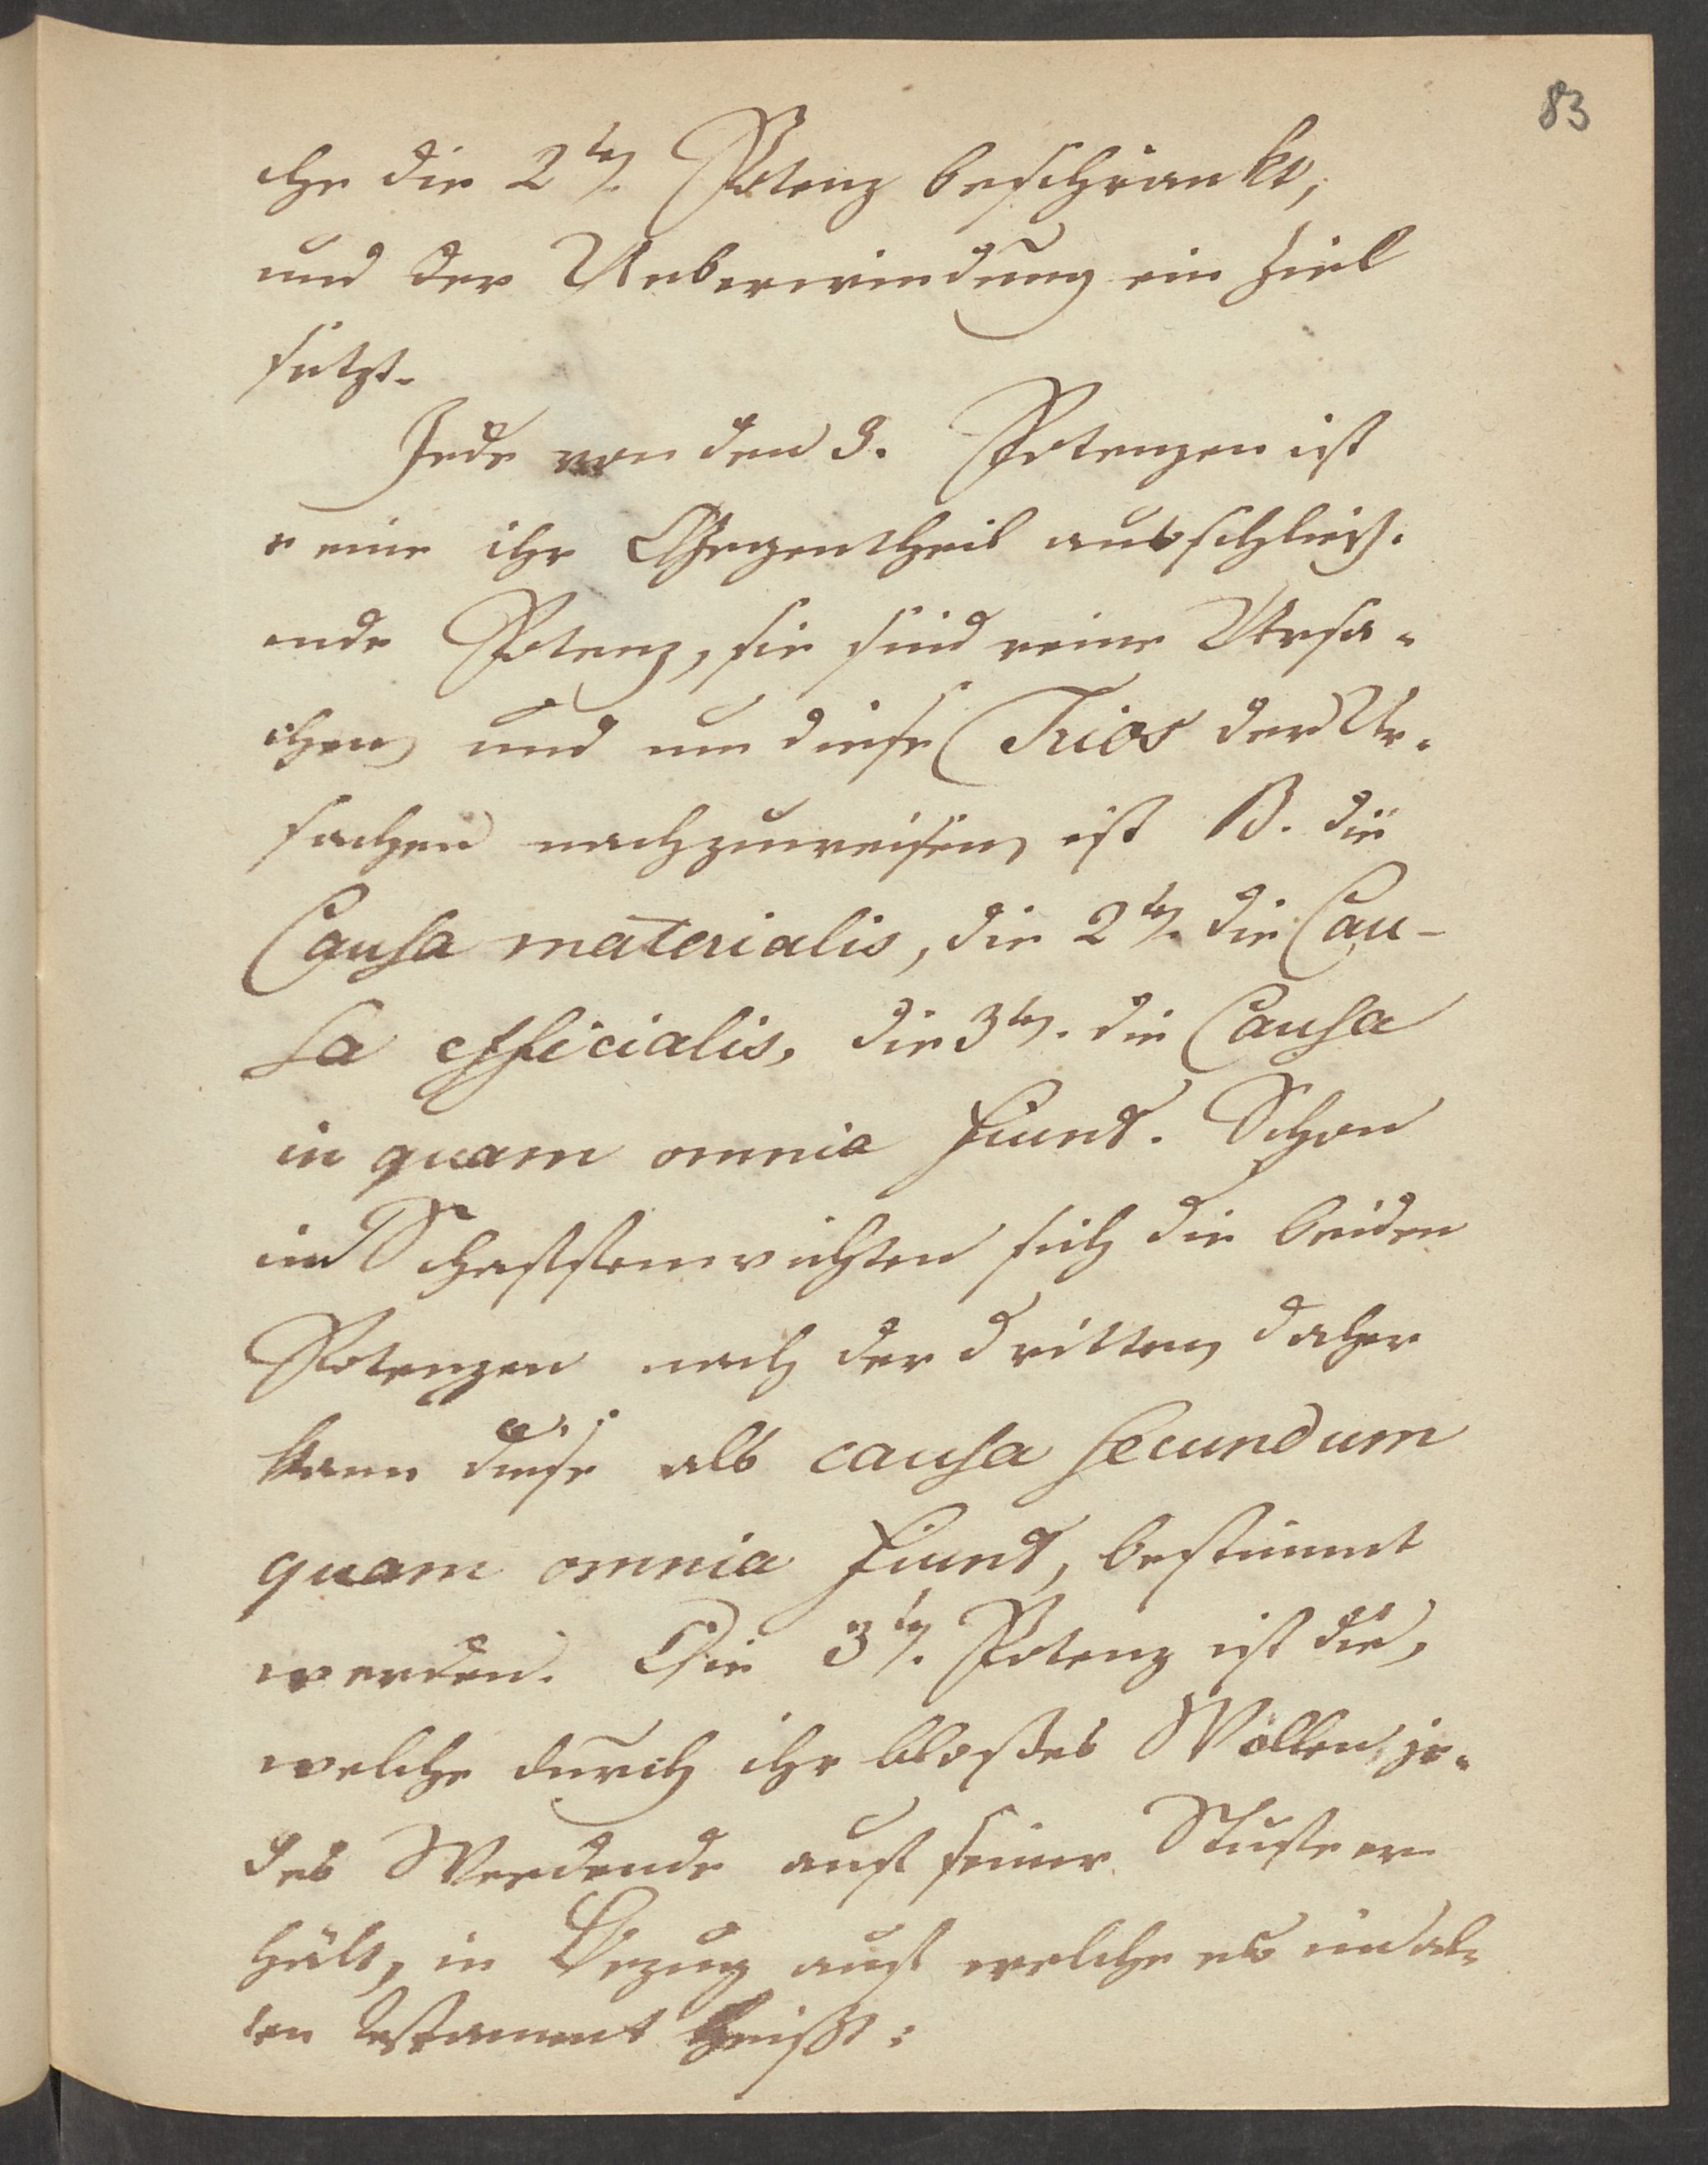 83
che die 2te. Potenz beschränkt,
und der Ueberwindung ein Ziel
setzt.
Jede von den 3. Potenzen ist
eine ihr Gegentheil ausschließ-
ende Potenz, sie sind reine Ursa-
chen und um diese Trios der Ur-
sachen nachzuweisen, ist B. die
Causa materialis, die 2te. die Cau-
sa efficialis, die 3te. die Causa
in quam omnia fiunt. Schon
im richten sich die beiden
Potenzen nach der dritten, daher
kann diese als causa secundum
quam omnia fiunt, bestimmt
werden. Die 3te. Potenz ist die,
welche durch ihr bloßes Wollen je-
des Werdende auf seiner Stufe er-
hält, in Bezug auf welche es im al-
ten Testament heißt: